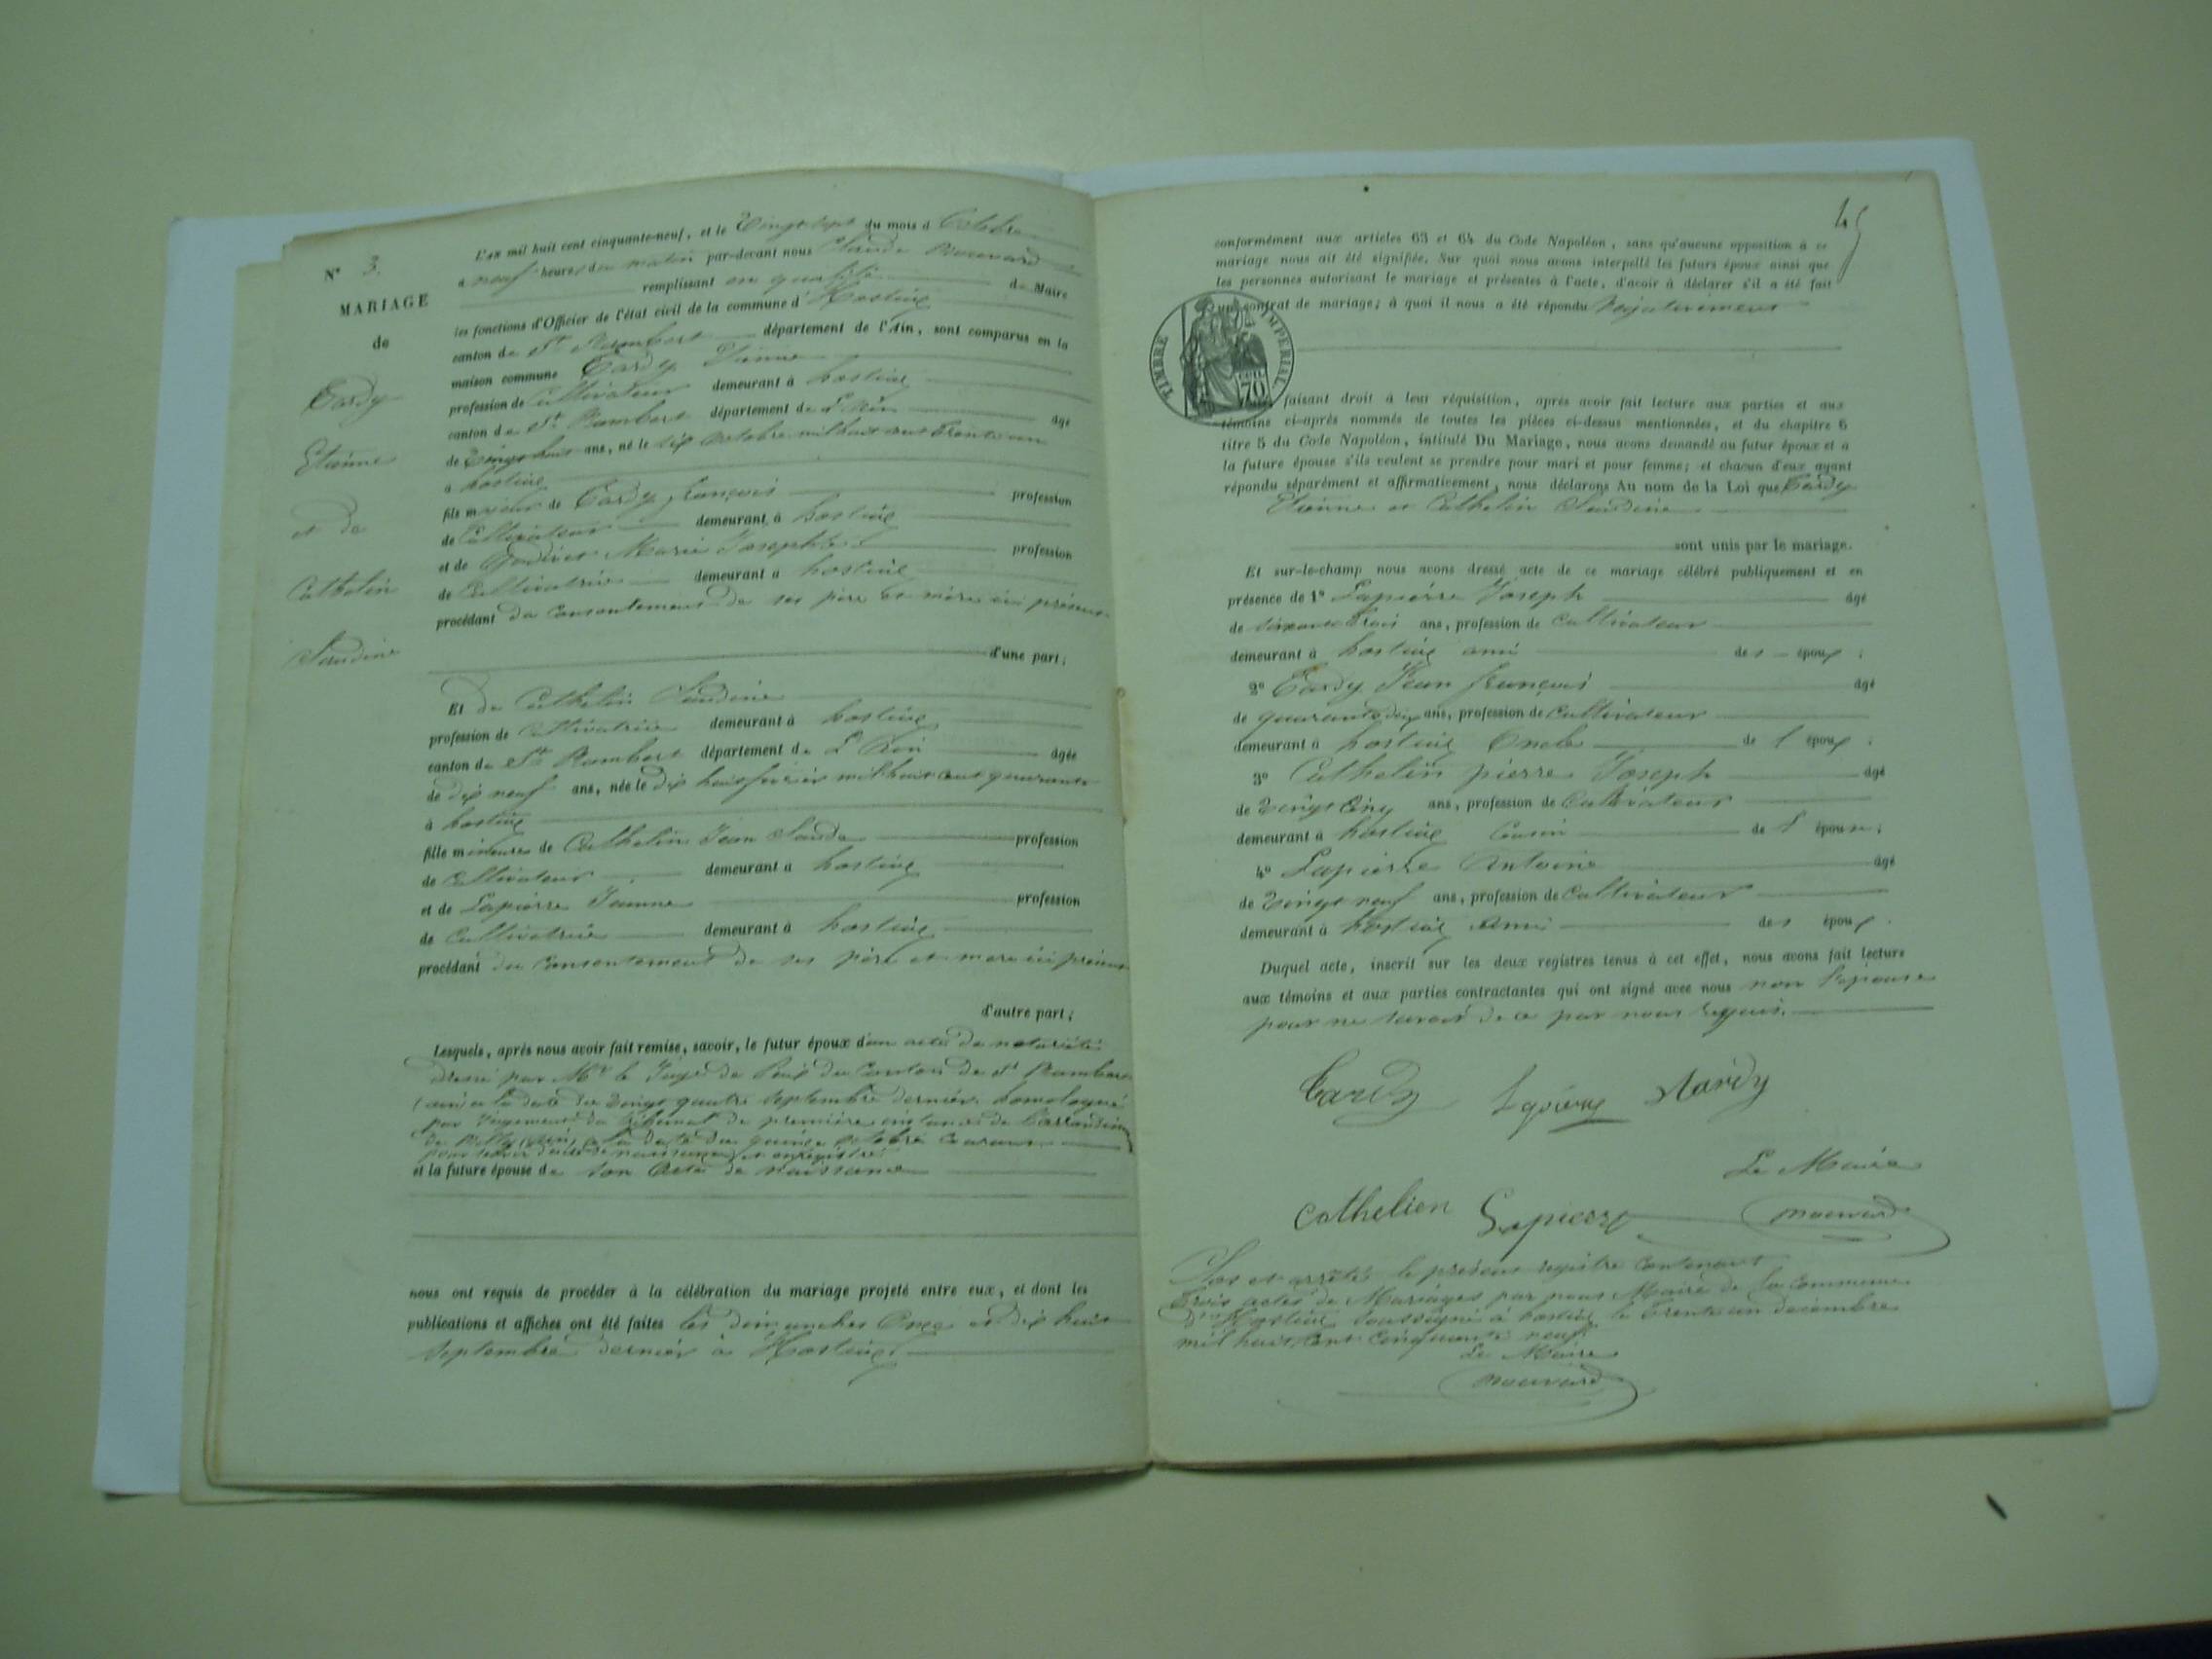 N° 3.
MARIAGE
de
Tardy
Etienne
et de
Cathelin
Claudine
L'an mil huit cent cinquante-neuf, et le Vingt sept du mois d'Octobre
à neuf heures du matin par-devant nous Claude
remplissant en qualité de Maire
les fonctions d'Officier de l'état civil de la commune d'Hostiaz
canton de St Rambert département de l'Ain, sont comparus en la
maison commune Tardy Etienne
profession de Cultivateur demeurant à hostiaz
canton de St Rambert département de L'Ain âgé
de Vingt huit ans, né le dix octobre mil huit cent trente un
à hostiaz
fils majeur de Tardy françois profession
de Cultivateur demeurant à hostiaz
et de Marie Josephte profession
de Cultivatrice demeurant à hostiaz
procédant du Consentement de ses père et mère ici présens
d'une part;
Et de Cathelin Claudine
profession de Cultivatrice demeurant à hostiaz
canton de St Rambert département de L'Ain âgée
de dix neuf ans, née le dix huit février mil huit cent quarante
à hostiaz
fille mineure de Cathelin Jean Claude profession
de Cultivateur demeurant à hostiaz
et de Lapierre Jeanne profession
de Cultivatrice demeurant à hostiaz
procédant du Consentement de ses père et mere ici présens
d'autre part;
Lesquels, après nous avoir fait remise, savoir, le futur époux d'un acte de notoriété
dressé par Mr le Juge de Paix du Canton de St Rambert
(ain) a la date du Vingt quatre Septembre dernier homologué
par Jugement du tribunal de première instance de l'arrondissement
de Belley (ain) a la date du quinze octobre Courant
pour tenir d'acte de naissance et enregistré
et la future épouse de son Acte de naissance
nous ont requis de procéder à la célébration du mariage projeté entre eux, et dont les
publications et affiches ont été faites les dimanches Onze et dix huit
Septembre dernier à Hostiaz
45
conformément aux articles 63 et 64 du Code Napoléon, sans qu'aucune opposition à ce
mariage nous ait été signifiée. Sur quoi nous avons interpellé les futurs époux ainsi que
les personnes autorisant le mariage et présentes à l'acte, d'avoir à déclarer s'il a été fait
un contrat de mariage; à quoi il nous a été répondu Négativement
TIMBRE IMPERIAL
70
faisant droit à leur réquisition, après avoir fait lecture aux parties et aux
témoins ci-après nommés de toutes les pièces ci-dessus mentionnées, et du chapitre 6
titre 5 du Code Napoléon, intitulé Du Mariage, nous avons demandé au futur époux et à
la future épouse s'ils veulent se prendre pour mari et pour femme; et chacun d'eux ayant
répondu séparément et affirmativement, nous déclarons Au nom de la Loi que Tardy
Etienne et Cathelin Claudine
sont unis par le mariage.
Et sur-le-champ nous avons dressé acte de ce mariage célébré publiquement et en
présence de 1° Lapierre Joseph âgé
de soixante trois ans, profession de Cultivateur
demeurant à hostiaz ami des époux;
2° Tardy Jean françois âgé
de quarante dix ans, profession de Cultivateur
demeurant à hostiaz Oncle de l'époux;
3° Cathelin pierre Joseph âgé
de Vingt Cinq ans, profession de Cultivateur
demeurant à hostiaz Cousin de l'épouse;
4° Lapierre Antoine âgé
de Vingt neuf ans, profession de Cultivateur
demeurant à hostiaz ami des époux.
Duquel acte, inscrit sur les deux registres tenus à cet effet, nous avons fait lecture
aux témoins et aux parties contractantes qui ont signé avec nous non l'épouse
pour ne savoir de ce par nous requis.
Tardy Lapierre Tardy
Le Maire
Cathelien Lapierre
Clos et arrêté le présent registre Contenant
trois actes de Mariages par nous Maire de la Commune
d'Hostiaz soussigné à hostiaz le trente un décembre
mil huit Cent Cinquante neuf
Le Maire